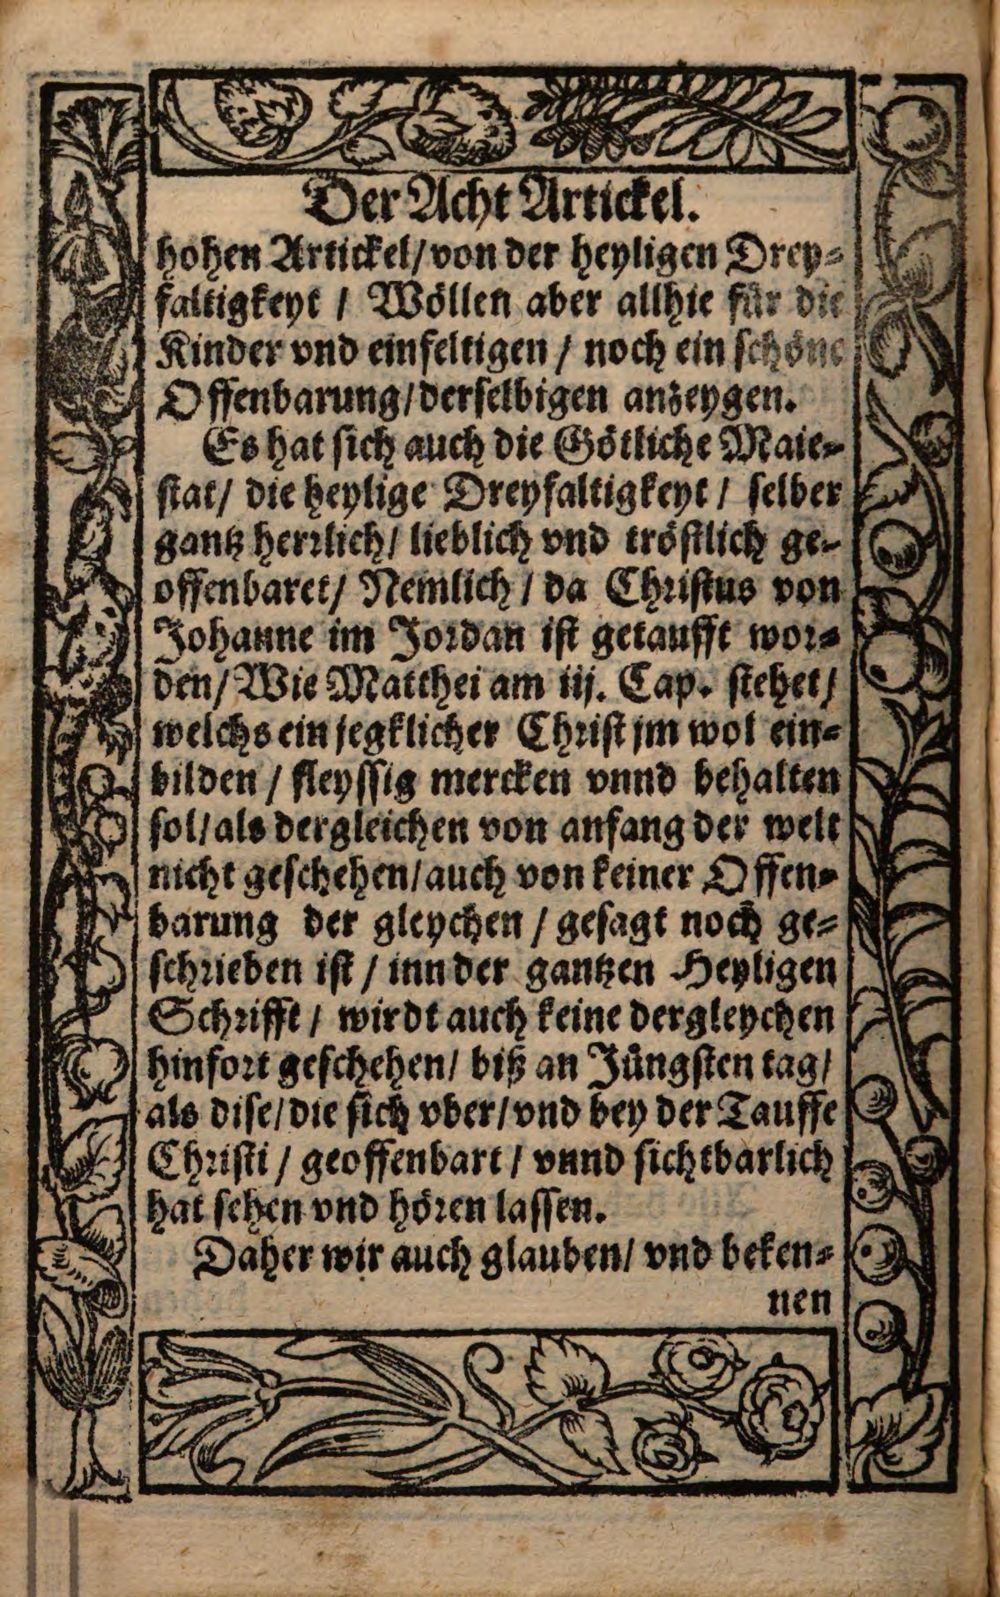 Der Acht Artickel.
hohen Artickel/ von der heyligen Drey-
faltigkeyt / Wöllen aber allhie für die
Kinder vnd einfeltigen / noch ein schöne
Offenbarung/ derselbigen anzeygen.
Es hat sich auch die Götliche Maie-
stat/ die heylige Dreyfaltigkeyt / selber
gantz herrlich/ lieblich vnd tröstlich ge-
offenbaret/ Nemlich / da Christus von
Johanne im Jordan ist getaufft wor-
den/ Wie Matthei am iij. Cap. stehet/
welchs ein jegklicher Christ jm wol ein-
bilden / fleyssig mercken vnnd behalten
sol/ als dergleichen von anfang der welt
nicht geschehen/ auch von keiner Offen-
barung der gleychen / gesagt noch ge-
schrieben ist / inn der gantzen Heyligen
Schrifft / wirdt auch keine dergleychen
hinfort geschehen/ biß an Jüngsten tag/
als dise/ die sich vber/ vnd bey der Tauffe
Christi / geoffenbart / vnnd sichtbarlich
hat sehen vnd hören lassen.
Daher wir auch glauben/ vnd beken-
nen